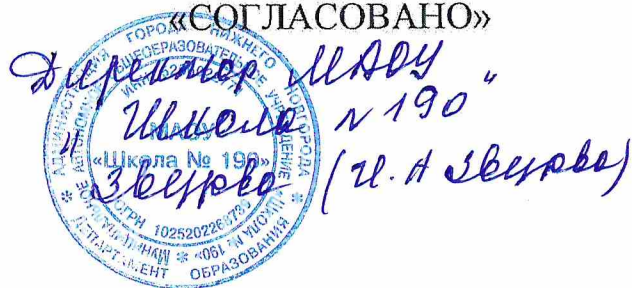 «СОГЛАСОВАНО»
Директор МАОУ
"Школа № 190"
Зверева (И.А Зверева)
АДМИНИСТРАЦИЯ ГОРОДА НИЖНЕГО НОВГОРОДА
ДЕПАРТАМЕНТ ОБРАЗОВАНИЯ
МУНИЦИПАЛЬНОЕ АВТОНОМНОЕ ОБЩЕОБРАЗОВАТЕЛЬНОЕ УЧРЕЖДЕНИЕ «ШКОЛА № 190»
ИНН
МАОУ
«Школа № 190»
ОГРН